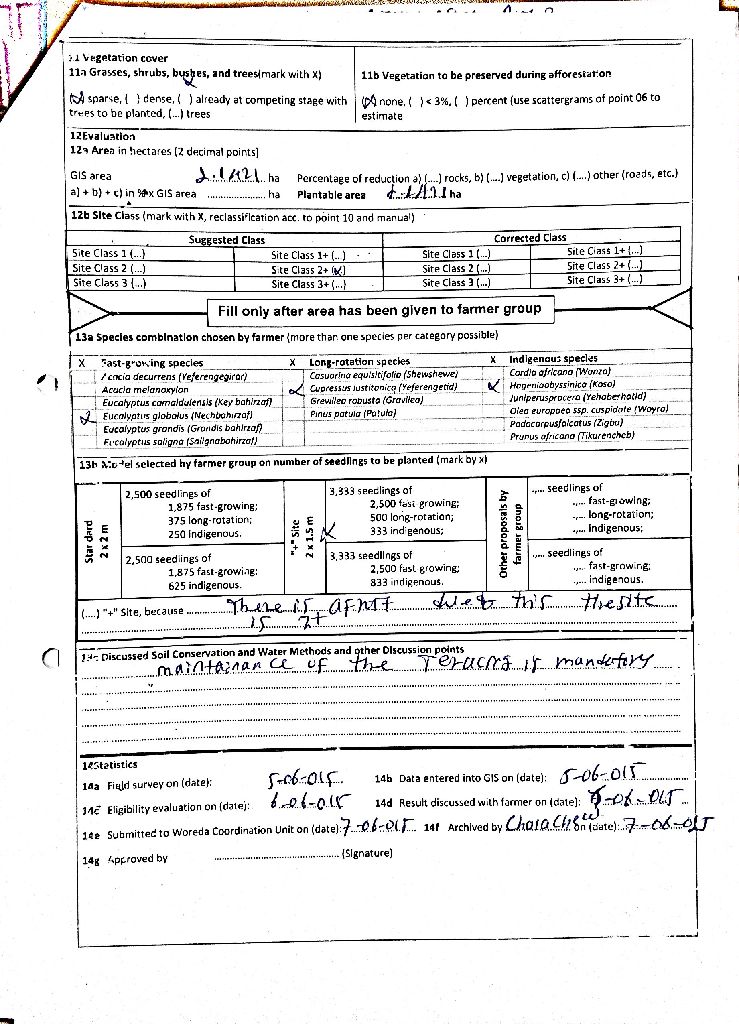 11 Vegetation cover
11a Grasses, shrubs, bushes, and trees(mark with X)
(X) sparse, ( ) dense, ( ) already at competing stage with
trees to be planted, (...) trees
11b Vegetation to be preserved during afforestation
(X) none, ( ) < 3%, ( ) percent (use scattergrams of point 06 to
estimate
12Evaluation
12a Area in hectares (2 decimal points]
GIS area ha Percentage of reduction a) (....) rocks, b) (....) vegetation, c) (....) other (roads, etc.)
a) + b) + c) in % x GIS area ..................... ha Plantable area ha
12b Site Class (mark with X, reclassification acc. to point 10 and manual)
Suggested Class Corrected Class
Site Class 1 (...) Site Class 1+ (...) Site Class 1 (...) Site Class 1+ (...)
Site Class 2 (...) Site Class 2+ (X) Site Class 2 (...) Site Class 2+ (...)
Site Class 3 (...) Site Class 3+ (...) Site Class 3 (...) Site Class 3+ (...)
Fill only after area has been given to farmer group
13a Species combination chosen by farmer (more than one species per category possible)
X Fast-growing species X Long-rotation species X Indigenous species
Acacia decurrens (Yeferengegirar) Casuarina equisitifolia (Shewshewe) Cordia africana (Wanza)
Acacia melanoxylon X Cupressus lustitanica (Yeferengetid) X Hageniaabyssinica (Koso)
Eucalyptus camaldulensis (Key bahirzaf) Grevillea robusta (Gravilea) Juniperusprocera (Yehabeshatid)
X Eucalyptus globolus (Nechbahirzaf) Pinus patula (Patula) Olea europaea ssp. cuspidate (Woyra)
Eucalyptus grandis (Grandis bahirzaf) Podocarpusfalcatus (Zigba)
Eucalyptus saligna (Salignabahirzaf) Prunus africana (Tikurencheb)
13b Model selected by farmer group on number of seedlings to be planted (mark by x)
Standard
2 x 2 m
2,500 seedlings of
1,875 fast-growing;
375 long-rotation;
250 indigenous.
2,500 seedlings of
1,875 fast-growing;
625 indigenous.
"+" Site
2 x 1.5 m
X
3,333 seedlings of
2,500 fast-growing;
500 long-rotation;
333 indigenous;
3,333 seedlings of
2,500 fast-growing;
833 indigenous.
Other proposals by
farmer group
.,... seedlings of
.,... fast-growing;
.,... long-rotation;
.,... indigenous;
.,... seedlings of
.,... fast-growing;
.,... indigenous.
(....) "+" Site, because There is due to this the site
is 2+
13c Discussed Soil Conservation and Water Methods and other Discussion points
maintainance of the is mandatory
14Statistics
14a Field survey on (date): 5-06-015 14b Data entered into GIS on (date): 5-06-015
14c Eligibility evaluation on (date): 6-06-015 14d Result discussed with farmer on (date): -06-015
14e Submitted to Woreda Coordination Unit on (date): 7-06-015 14f Archived by on (date): 7-06-015
14g Approved by ................................ (Signature)